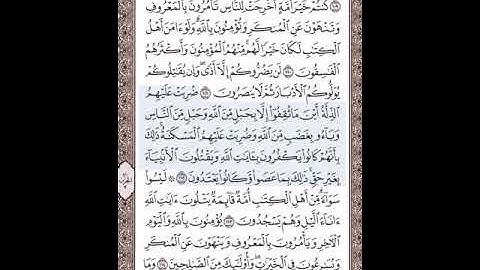 كُنتُمْ خَيْرَ أُمَّةٍ أُخْرِجَتْ لِلنَّاسِ تَأْمُرُونَ بِٱلْمَعْرُوفِ
وَتَنْهَوْنَ عَنِ ٱلْمُنكَرِ وَتُؤْمِنُونَ بِٱللَّهِ وَلَوْ ءَامَنَ أَهْلُ
ٱلْكِتَٰبِ لَكَانَ خَيْرًا لَّهُم مِّنْهُمُ ٱلْمُؤْمِنُونَ وَأَكْثَرُهُمُ
ٱلْفَٰسِقُونَ ١١٠ لَن يَضُرُّوكُمْ إِلَّآ أَذًى وَإِن يُقَٰتِلُوكُمْ
يُوَلُّوكُمُ ٱلْأَدْبَارَ ثُمَّ لَا يُنصَرُونَ ١١١ ضُرِبَتْ عَلَيْهِمُ
ٱلذِّلَّةُ أَيْنَ مَا ثُقِفُوٓا۟ إِلَّا بِحَبْلٍ مِّنَ ٱللَّهِ وَحَبْلٍ مِّنَ ٱلنَّاسِ
وَبَآءُو بِغَضَبٍ مِّنَ ٱللَّهِ وَضُرِبَتْ عَلَيْهِمُ ٱلْمَسْكَنَةُ ذَٰلِكَ
بِأَنَّهُمْ كَانُوا۟ يَكْفُرُونَ بِـَٔايَٰتِ ٱللَّهِ وَيَقْتُلُونَ ٱلْأَنۢبِيَآءَ
بِغَيْرِ حَقٍّ ذَٰلِكَ بِمَا عَصَوا۟ وَّكَانُوا۟ يَعْتَدُونَ ١١٢ لَيْسُوا۟
سَوَآءً مِّنْ أَهْلِ ٱلْكِتَٰبِ أُمَّةٌ قَآئِمَةٌ يَتْلُونَ ءَايَٰتِ ٱللَّهِ
ءَانَآءَ ٱلَّيْلِ وَهُمْ يَسْجُدُونَ ١١٣ يُؤْمِنُونَ بِٱللَّهِ وَٱلْيَوْمِ
ٱلْءَاخِرِ وَيَأْمُرُونَ بِٱلْمَعْرُوفِ وَيَنْهَوْنَ عَنِ ٱلْمُنكَرِ
وَيُسَٰرِعُونَ فِى ٱلْخَيْرَٰتِ وَأُو۟لَٰٓئِكَ مِنَ ٱلصَّٰلِحِينَ ١١٤ وَمَا